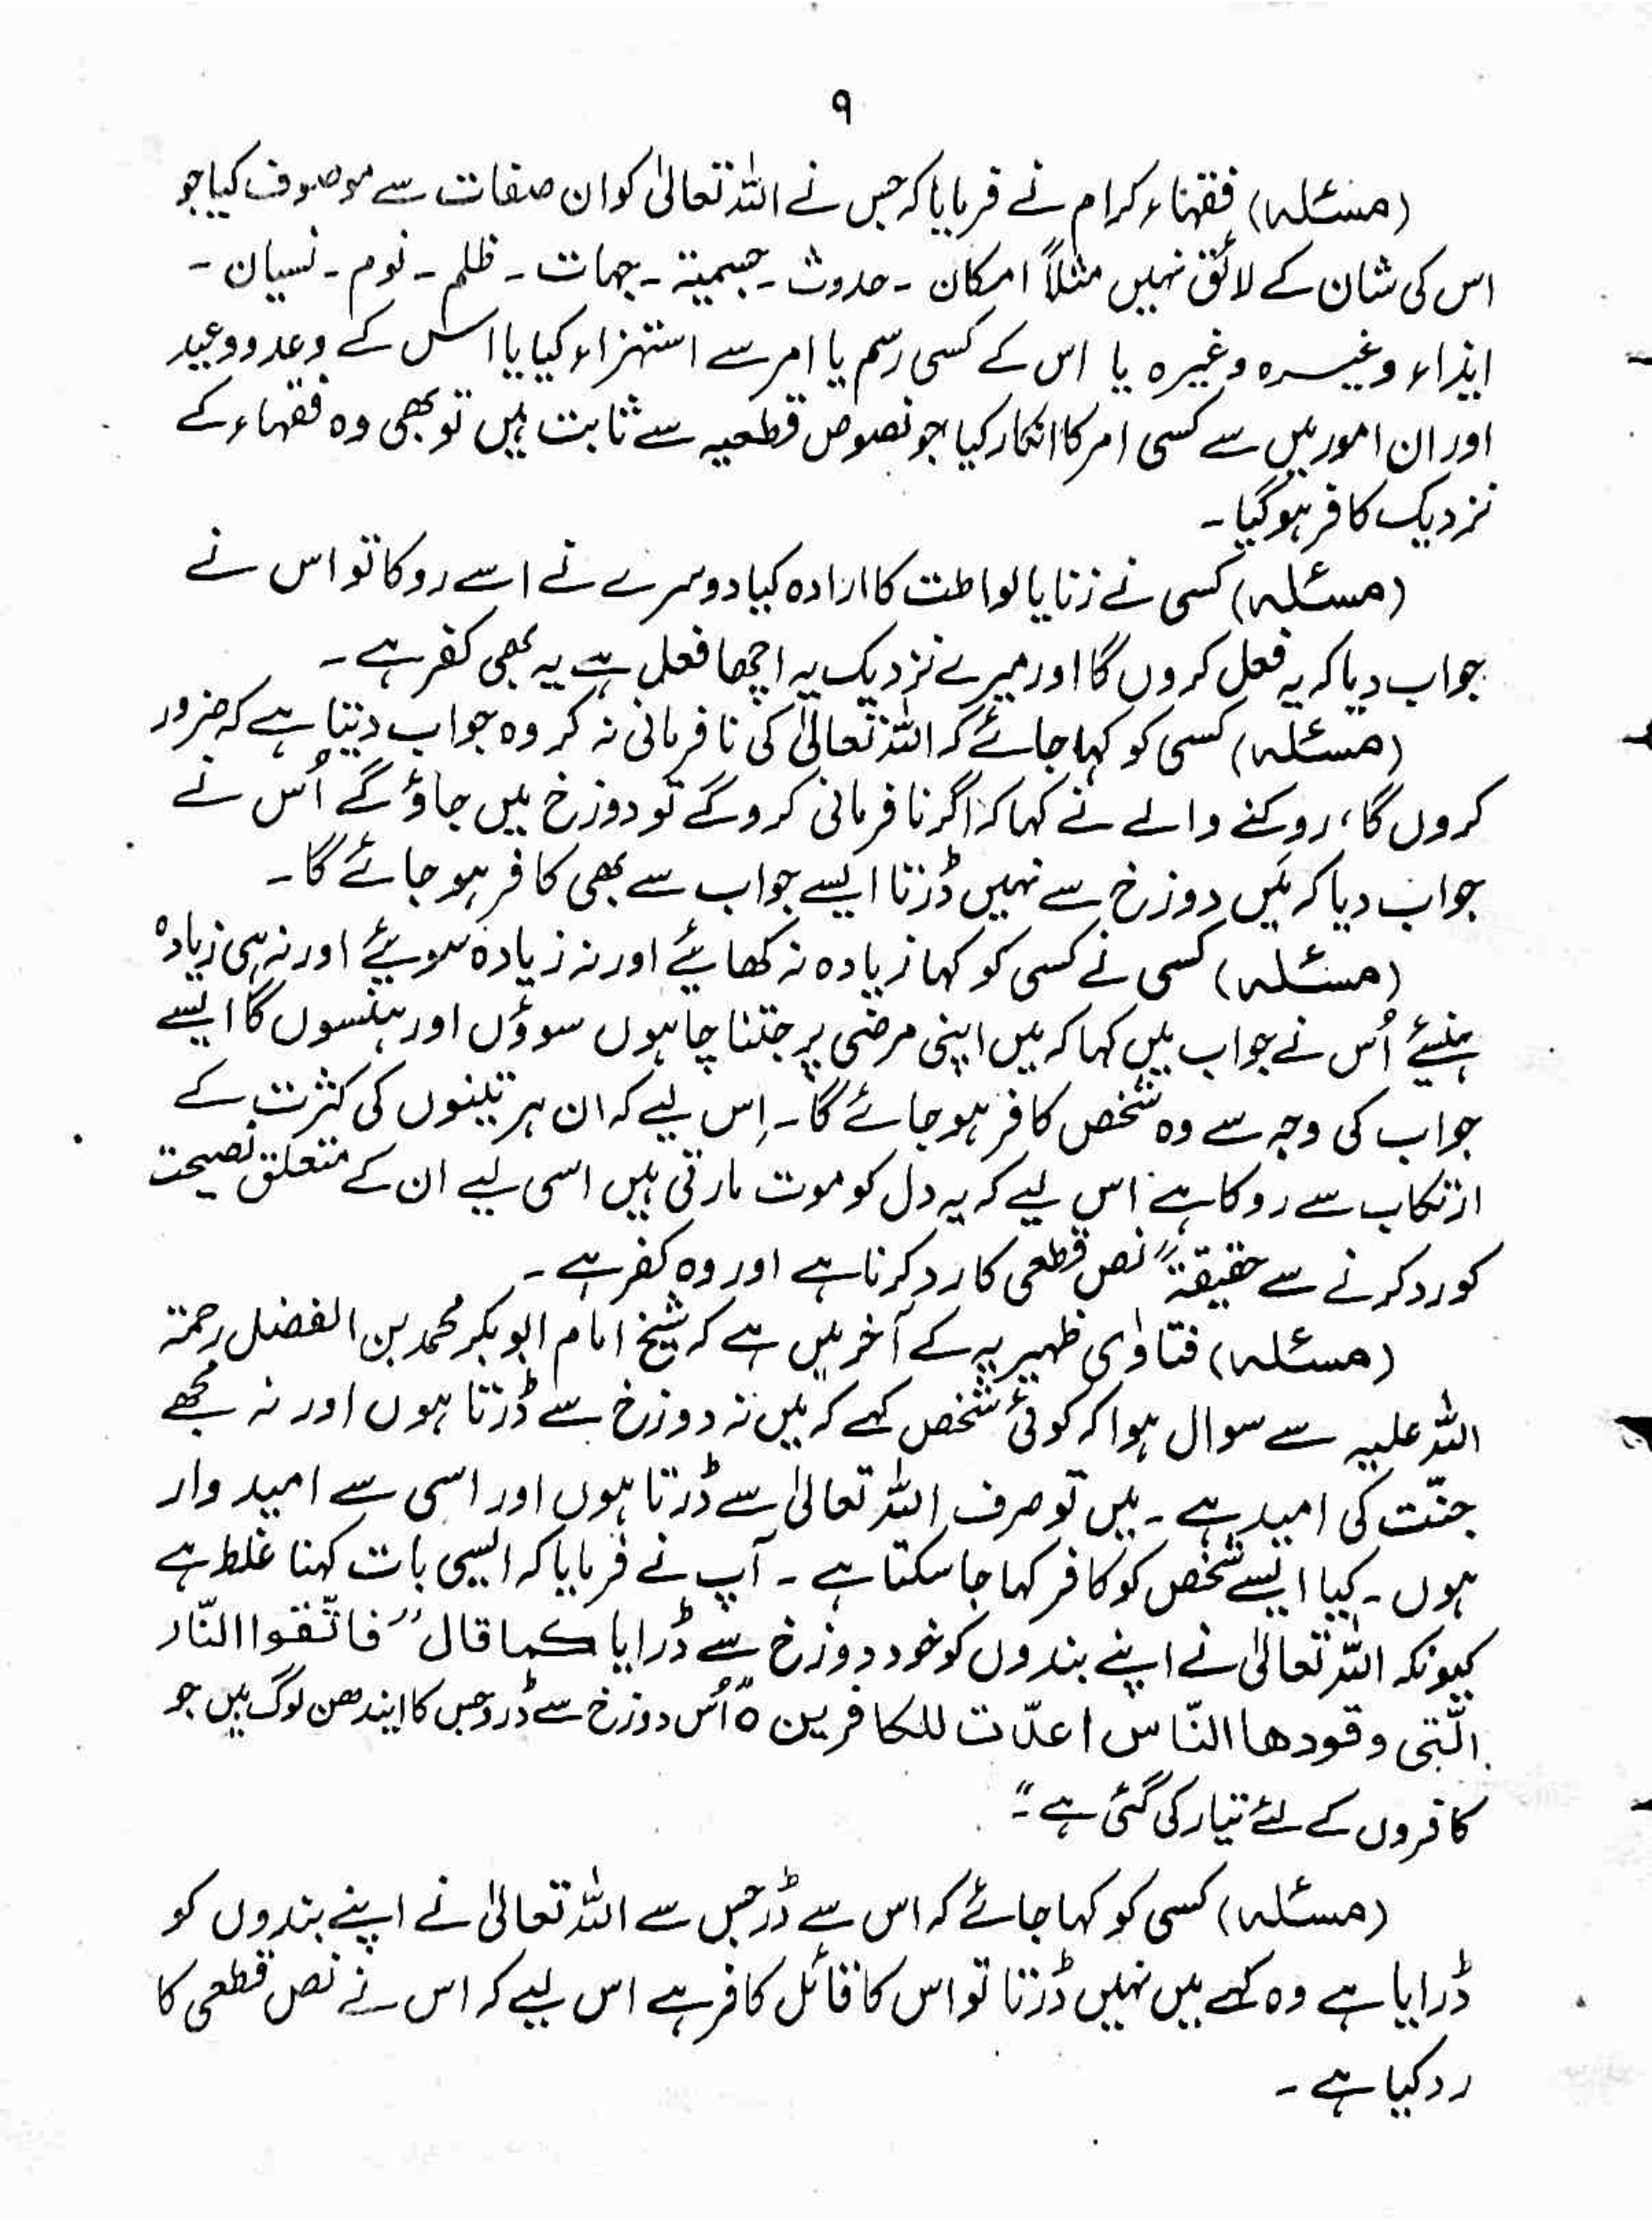 ۹
(مسئلہ) فقہاء کرام نے فرمایا کہ جس نے اللہ تعالیٰ کو ان صفات سے موصوف کیا جو
اس کی شان کے لائق نہیں مثلاً امکان ۔ حدوث ۔ جسمیۃ ۔ جہات ۔ ظلم ۔ نوم ۔ نسیان ۔
ایذاء وغیرہ وغیرہ یا اس کے کسی رسم یا امر سے استہزاء کیا یا اس کے وعد ووعید
اور ان امور میں سے کسی امر کا انکار کیا جو نصوص قطعیہ سے ثابت ہیں تو بھی وہ فقہاء کے
نزدیک کافر ہو گیا ۔
(مسئلہ) کسی نے زنا یا لواطت کا ارادہ کیا دوسرے نے اسے روکا تو اس نے
جواب دیا کہ یہ فعل کروں گا اور میرے نزدیک یہ اچھا فعل ہے یہ بھی کفر ہے ۔
(مسئلہ) کسی کو کہا جائے کہ اللہ تعالیٰ کی نافرمانی نہ کر وہ جواب دیتا ہے کہ ضرور
کروں گا، روکنے والے نے کہا کہ اگر نافرمانی کرو گے تو دوزخ میں جاؤ گے اُس نے
جواب دیا کہ مَیں دوزخ سے نہیں ڈرتا ایسے جواب سے بھی کافر ہو جائے گا ۔
(مسئلہ) کسی نے کسی کو کہا زیادہ نہ کھائیے اور نہ زیادہ سوئیے اور نہ ہی زیادہ
ہنسیئے اُس نے جواب میں کہا کہ میں اپنی مرضی پر جتنا چاہوں سوؤں اور ہنسوں گا ایسے
جواب کی وجہ سے وہ شخص کافر ہو جائے گا ۔ اِس لیے کہ ان ہر تینوں کی کثرت کے
ارتکاب سے روکا ہے اس لیے کہ یہ دل کو موت مارتی ہیں اسی لیے ان کے متعلق نصیحت
کو رد کرنے سے حقیقۃً نص قطعی کا رد کرنا ہے اور وہ کفر ہے ۔
(مسئلہ) فتاوٰی ظہیریہ کے آخر میں ہے کہ شیخ امام ابو بکر محمد بن الفضل رحمۃ
اللہ علیہ سے سوال ہوا کہ کوئی شخص کہے کہ میں نہ دوزخ سے ڈرتا ہوں اور نہ مجھے
جنّت کی امید ہے ۔ میں تو صرف اللہ تعالیٰ سے ڈرتا ہوں اور اسی سے امید وار
ہوں ۔ کیا ایسے شخص کو کافر کہا جا سکتا ہے ۔ آپ نے فرمایا کہ ایسی بات کہنا غلط ہے
کیونکہ اللہ تعالیٰ نے اپنے بندوں کو خود دوزخ سے ڈرایا کما قال ”فاتّقوا النّار
الّتی وقودھا النّاس اعدّت للکافرین ہ اُس دوزخ سے ڈرو جس کا ایندھن لوگ ہیں جو
کافروں کے لئے تیار کی گئی ہے ۔“
(مسئلہ) کسی کو کہا جائے کہ اس سے ڈر جس سے اللہ تعالیٰ نے اپنے بندوں کو
ڈرایا ہے وہ کہے میں نہیں ڈرتا تو اس کا قائل کافر ہے اس لیے کہ اس نے نص قطعی کا
رد کیا ہے ۔